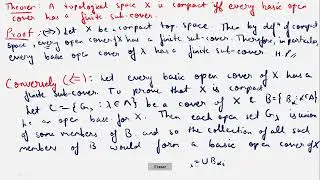 Theorem: A topological space X is compact iff every basic open
cover has a finite sub-cover.
Proof: (⇒) Let X be a compact top. space. Then by def" of compact
space, every open cover of X has a finite sub-cover. Therefore, in particular,
every basic open cover of X has a finite sub-cover. H.P.
Conversely (⇐=): Let every basic open cover of X has a
finite sub-cover. To prove that X is compact
Let C = {Gλ : λ ∈ Λ} be a cover of X & B = {Bα : α ∈ Λ}
be an open base for X. Then each open set Gλ is union
of some members of B. and so the collection of all such
members of B would form a basic open cover of X
= ∪ Bαi
Eraser